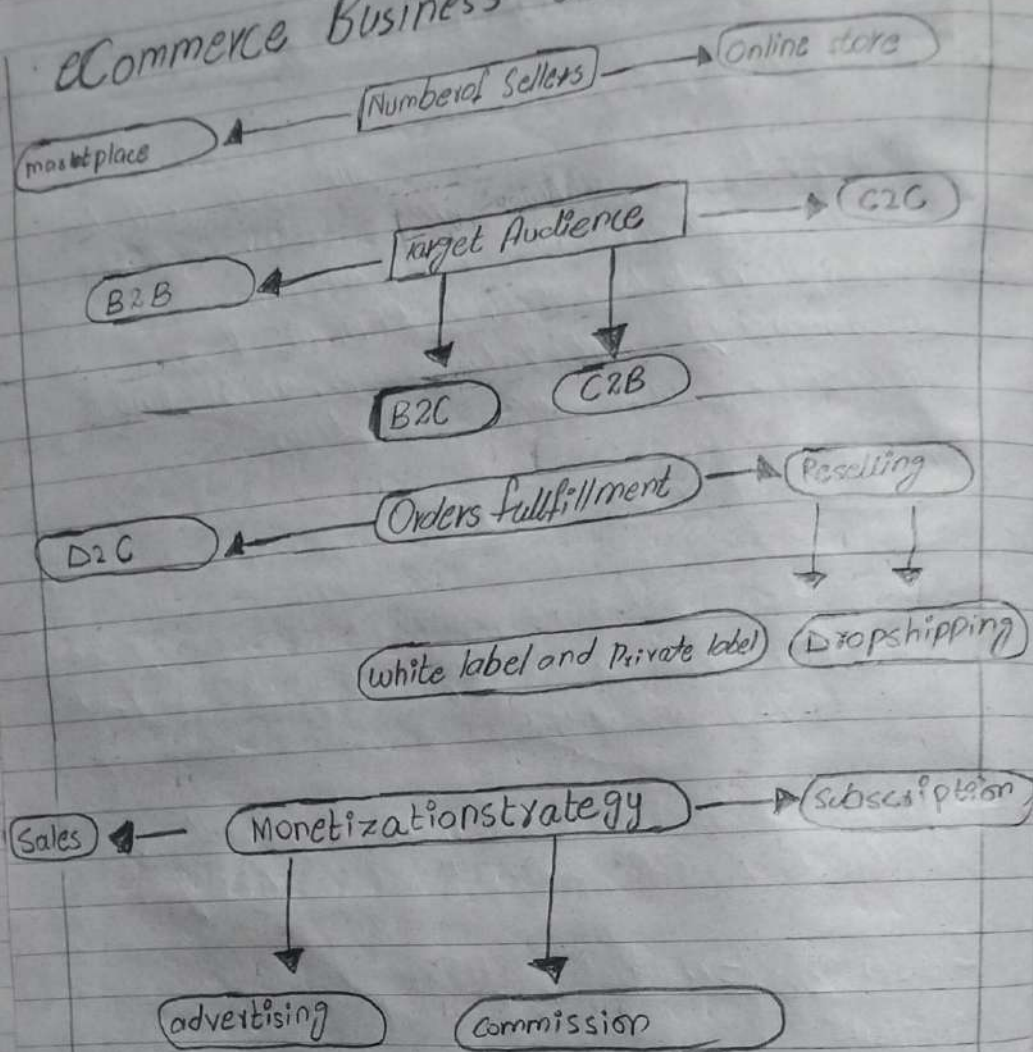 eCommerce Business
Number of Sellers
Online store
marketplace
Target Audience
C2C
B2B
B2C
C2B
Orders fullfillment
Reselling
D2C
White label and Private label
Dropshipping
Monetizationstrategy
Subscription
Sales
advertising
Commission